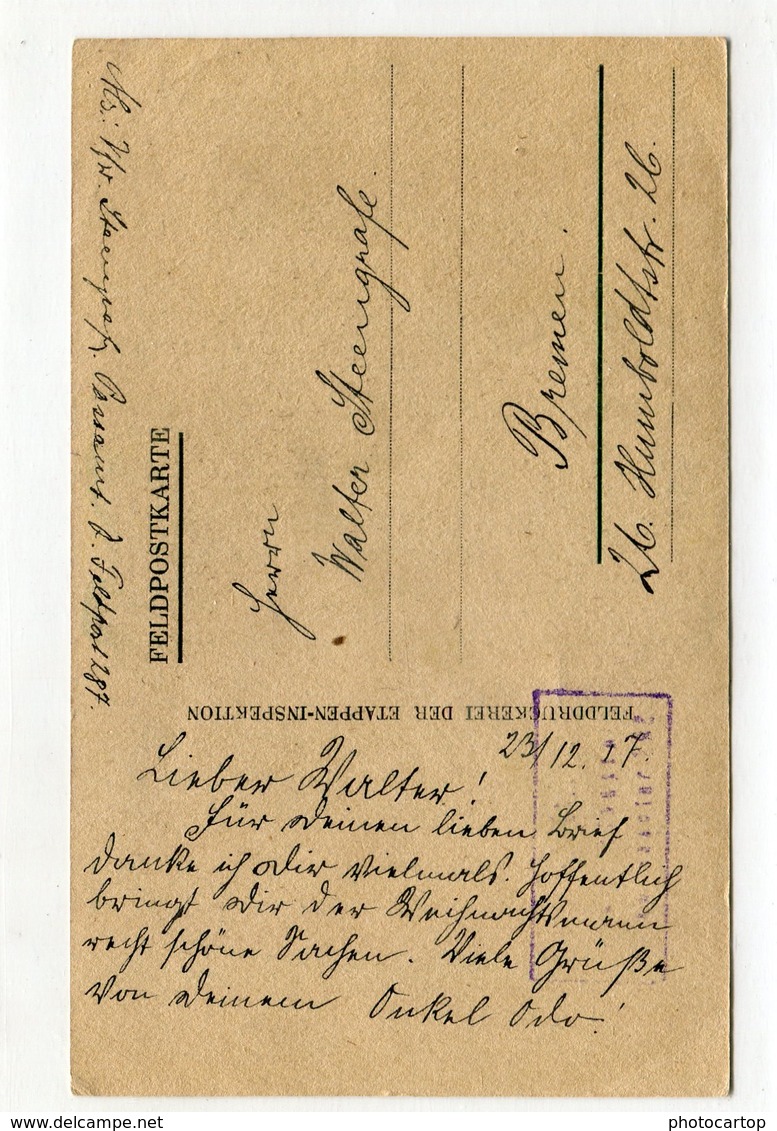 FELDPOSTKARTE
Herrn
Walter Steengrafe.
Bremen.
26. Humboldtstr. 26.
Feldpost 287.
FELDDRUCKEREI DER ETAPPEN-INSPEKTION
23/12.17.
Lieber Walter!
Für deinen lieben Brief
danke ich dir vielmals. Hoffentlich
bringt dir der Weihnachtsmann
recht schöne Sachen. Viele Grüße
von deinem Onkel Odo!
www.delcampe.net
photocartop